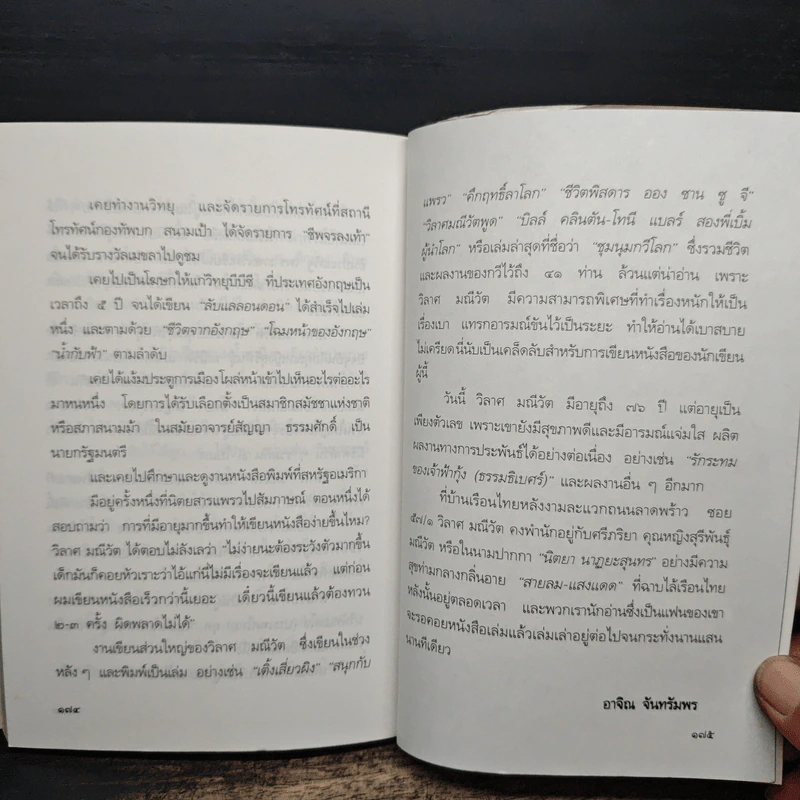 เคยทำงานวิทยุ และจัดรายการโทรทัศน์ที่สถานี
โทรทัศน์กองทัพบก สนามเป้า ได้จัดรายการ "ชีพจรลงเท้า"
จนได้รับรางวัลเมขลาไปดูชม
เคยไปเป็นโฆษกให้แก่วิทยุบีบีซี ที่ประเทศอังกฤษเป็น
เวลาถึง ๕ ปี จนได้เขียน "ลับแลลอนดอน" ได้สำเร็จไปเล่ม
หนึ่ง และตามด้วย "ชีวิตจากอังกฤษ" "โฉมหน้าของอังกฤษ"
"น้ำกับฟ้า" ตามลำดับ
เคยได้แง้มประตูการเมืองโผล่หน้าเข้าไปเห็นอะไรต่ออะไร
มาหนหนึ่ง โดยการได้รับเลือกตั้งเป็นสมาชิกสมัชชาแห่งชาติ
หรือสภาสนามม้า ในสมัยอาจารย์สัญญา ธรรมศักดิ์ เป็น
นายกรัฐมนตรี
และเคยไปศึกษาและดูงานหนังสือพิมพ์ที่สหรัฐอเมริกา
มีอยู่ครั้งหนึ่งที่นิตยสารแพรวไปสัมภาษณ์ ตอนหนึ่งได้
สอบถามว่า การที่มีอายุมากขึ้นทำให้เขียนหนังสือง่ายขึ้นไหม?
วิลาศ มณีวัต ได้ตอบไม่ลังเลว่า "ไม่ง่ายนะต้องระวังตัวมากขึ้น
เด็กมันก็คอยหัวเราะว่าไอ้แก่นี่ไม่มีเรื่องจะเขียนแล้ว แต่ก่อน
ผมเขียนหนังสือเร็วกว่านี้เยอะ เดี๋ยวนี้เขียนแล้วต้องทวน
๒-๓ ครั้ง ผิดพลาดไม่ได้"
งานเขียนส่วนใหญ่ของวิลาศ มณีวัต ซึ่งเขียนในช่วง
หลัง ๆ และพิมพ์เป็นเล่ม อย่างเช่น "เตี้งเสี่ยวผิง" "สนุกกับ
๑๗๔
แพรว" "คึกฤทธิ์ลาโลก" "ชีวิตพิสดาร ออง ซาน ซู จี"
"วิลาศมณีวัตพูด" "บิลล์ คลินตัน-โทนี แบลร์ สองพี่เบิ้ม
ผู้นำโลก" หรือเล่มล่าสุดที่ชื่อว่า "ชุมนุมกวีโลก" ซึ่งรวมชีวิต
และผลงานของกวีไว้ถึง ๔๑ ท่าน ล้วนแต่น่าอ่าน เพราะ
วิลาศ มณีวัต มีความสามารถพิเศษที่ทำเรื่องหนักให้เป็น
เรื่องเบา แทรกอารมณ์ขันไว้เป็นระยะ ทำให้อ่านได้เบาสบาย
ไม่เครียดนี่นับเป็นเคล็ดลับสำหรับการเขียนหนังสือของนักเขียน
ผู้นี้
วันนี้ วิลาศ มณีวัต มีอายุถึง ๗๖ ปี แต่อายุเป็น
เพียงตัวเลข เพราะเขายังมีสุขภาพดีและมีอารมณ์แจ่มใส ผลิต
ผลงานทางการประพันธ์ได้อย่างต่อเนื่อง อย่างเช่น "รักระทม
ของเจ้าฟ้ากุ้ง (ธรรมธิเบศร์)" และผลงานอื่น ๆ อีกมาก
ที่บ้านเรือนไทยหลังงามละแวกถนนลาดพร้าว ซอย
๕๗/๑ วิลาศ มณีวัต คงพำนักอยู่กับศรีภริยา คุณหญิงสุรีพันธุ์
มณีวัต หรือในนามปากกา "นิตยา นาฏยะสุนทร" อย่างมีความ
สุขท่ามกลางกลิ่นอาย "สายลม-แสงแดด" ที่ฉาบไล้เรือนไทย
หลังนั้นอยู่ตลอดเวลา และพวกเรานักอ่านซึ่งเป็นแฟนของเขา
จะรอคอยหนังสือเล่มแล้วเล่มเล่าอยู่ต่อไปจนกระทั่งนานแสน
นานทีเดียว
อาจิณ จันทรัมพร
๑๗๕